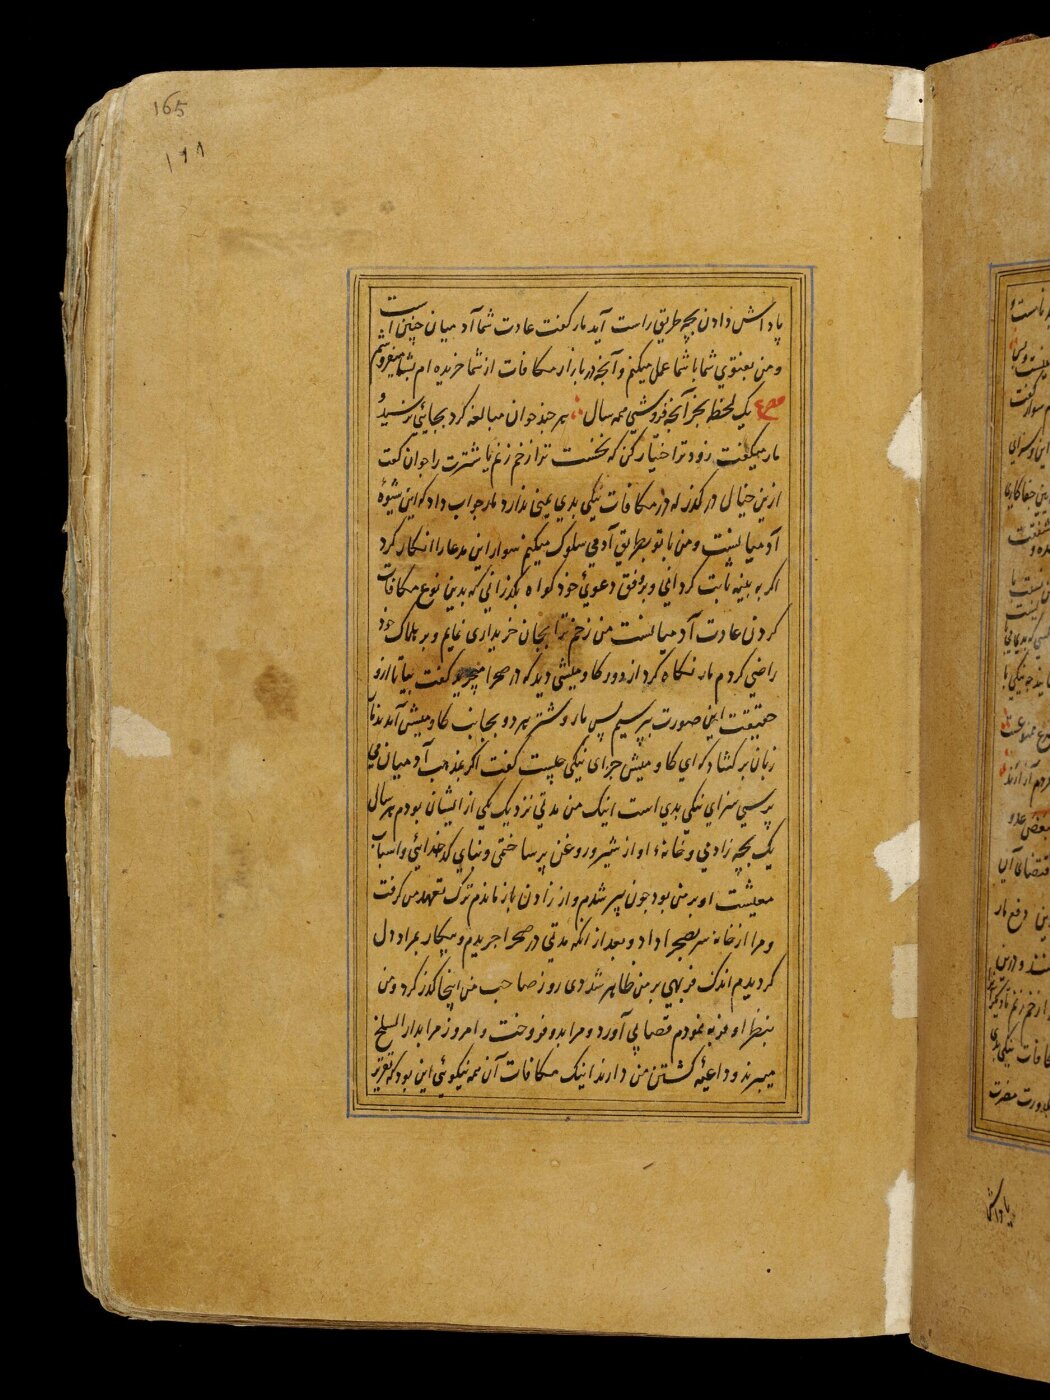 165
۱۲۱
پاداش دادن بچه طریق راست آید مار کفت عادت شما آدمیان چنین است
و من بفتوی شما با شما عمل میکنم و آنچه در بازار مکافات از شما خریده ام بشما میفروشم
مصرع یک لحظه بخر آنچه فروشی همه سال هر چند جوان مبالغه کرد بجائی نرسید و
مار میکفت زودتر اختیار کن که نخست ترا زخم زنم یا شترت را جوان کفت
ازین خیال در کذر که در مکافات نیکی بدی یمنی ندارد مار جواب داد که این شیوهٔ
آدمیانست و من با تو بطریق آدمی سلوک میکنم سوار این مدعا را انکار کرد
اکر به بینه ثابت کردانی و بر وفق دعوئ خود کواه بکذرانی که بدین نوع مکافات
کردن عادت آدمیانست من زخم ترا بجان خریداری نمایم و بر هلاک خود
راضی کردم مار نکاه کرد از دور کاومیشی دید که در صحرا میچرید کفت بیا تا از و
حقیقت این صورت بپرسیم پس مار و شتر هر دو بجانب کاومیش آمدند مار
زبان برکشاد که ای کاومیش جزای نیکی چیست کفت اکر بمذهب آدمیان می
پرسی سزای نیکی بدی است اینک من مدتی نزدیک یکی از ایشان بودم هر سال
یک بچه زادمی و خانهٔ او از شیر و روغن پر ساختمی و بنای کدخدائی و اسباب
معیشت او بر من بود چون پیر شدم و از زادن باز ماندم ترک تعهد من کرفت
و مرا از خانه سر بصحرا داد و بعد از انکه مدتی در صحرا چریدم و بیکار بمراد دل
کردیدم اندک فربهی بر من ظاهر شد دی روز صاحب من اینجا کذر کرد و من
بنظر او فربه نمودم قصابی آورد و مرا بدو فروخت و امروز مرا بدار المسلخ
میبرند و داعیهٔ کشتن من دارند اینک مکافات آن همه نیکوئی این بود که تقریر
پاداش